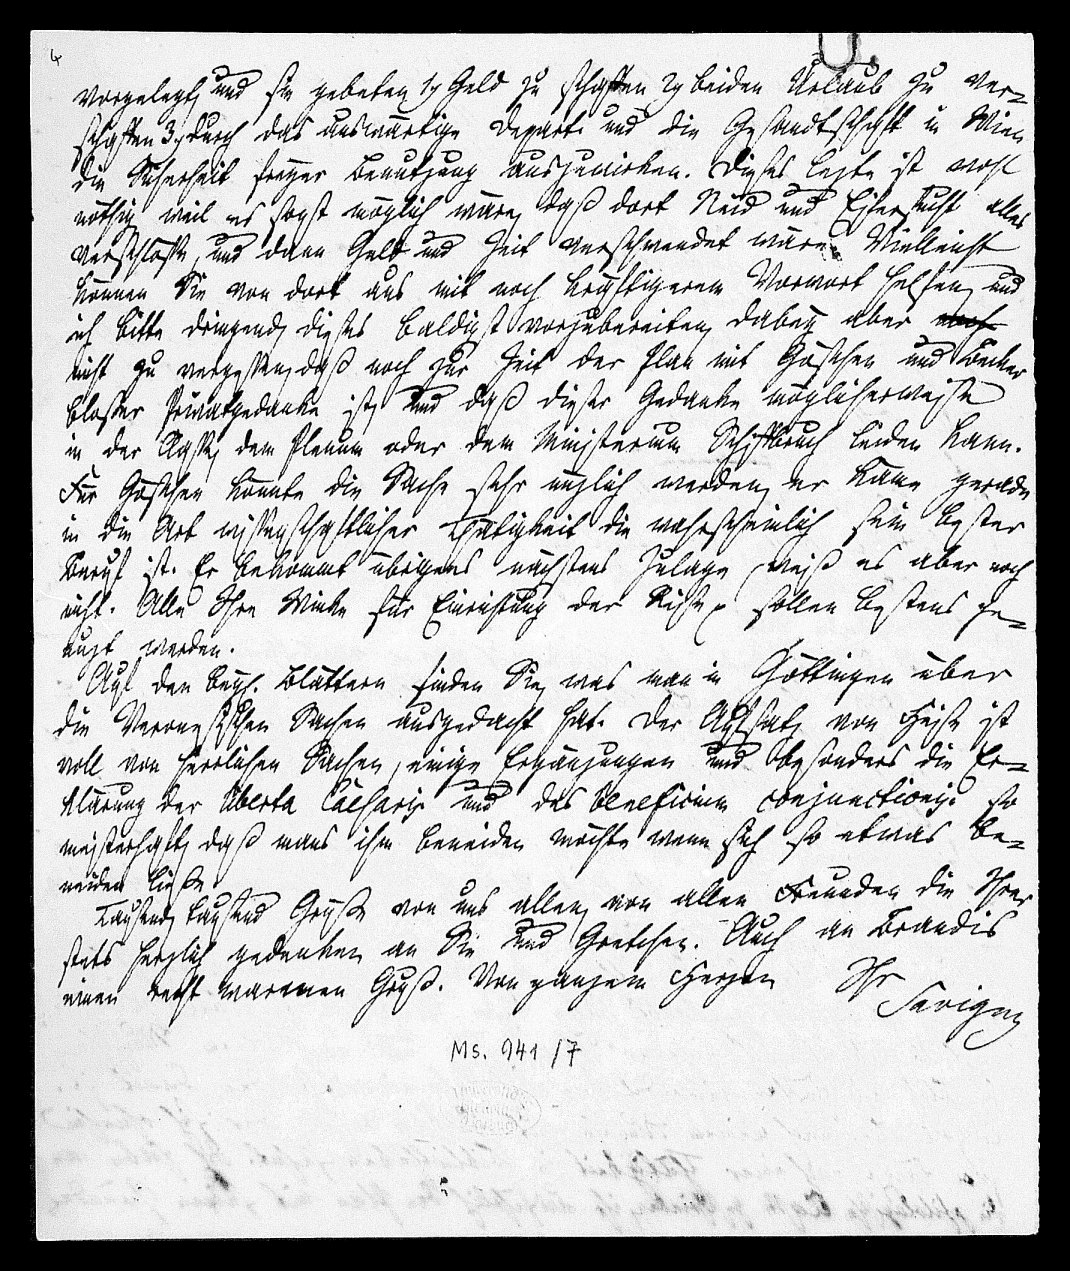 4
vorgelegt, und sie gebeten 1) Geld zu schaffen 2) beiden Urlaub zu ver-
schaffen 3) durch das auswärtige Depart. und die Gesandtschaft in Wien
die Sicherheit freyer Benutzung auszuwirken. Dieses lezte ist wohl
nöthig weil es sonst möglich wäre, daß dort Neid und Eifersucht alles
verschlösse, und dann Geld und Zeit verschwendet wäre. Vielleicht
können Sie von dort aus mit noch kräftigerem Vorwort helfen, und
ich bitte dringend, dieses baldigst vorzubereiten, dabey aber
nicht zu vergessen, daß noch zur Zeit der Plan mit Göschen und Becker
blosser Privatgedanke ist, und daß dieser Gedanke möglicherweise
in der Classe, dem Plenum oder dem Ministerium Schiffbruch leiden kann.
Für Göschen könnte die Sache sehr nüzlich werden, er käme gerade
in die Art wissenschaftlicher Thätigkeit die wahrscheinlich sein bester
Beruf ist. Er bekommt übrigens nächstens Zulage, weiß es aber noch
nicht. Alle Ihre Winke für Einrichtung der sollen bestens ge-
nuzt werden.
Aus den beyl. Blättern finden Sie, was man in Göttingen über
die Veronesischen Sachen ausgedacht hat. Der Aufsatz von Heise ist
voll von herrlichen Sachen, einige Ergänzungen und besonders die Er-
klärung der liberta Caesaris und des beneficium conjunctionis so
meisterhaft, daß mans ihm beneiden möchte wenn sich so etwas be-
neiden liesse.
Tausend, tausend Grüsse von uns allen, von allen Freunden die Ihrer
stets herzlich gedenken an Sie und Gretchen. Auch an Brandis
einen recht warmen Gruß. Von ganzem Herzen Ihr
Savigny
Ms. 941/7